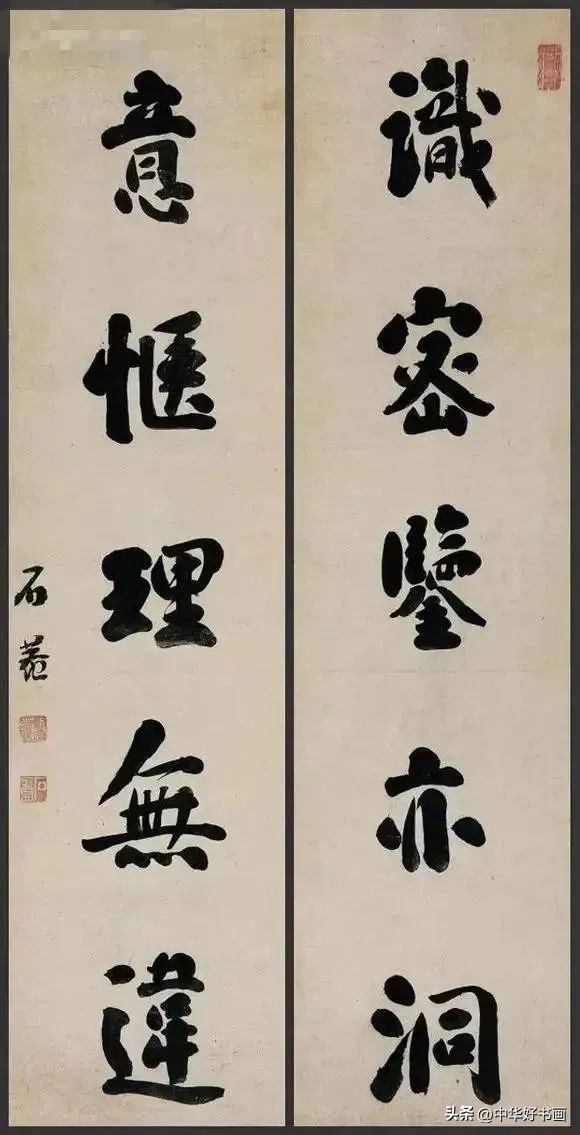 識密鑒亦洞
意愜理無違
石菴
头条 @中华好书画